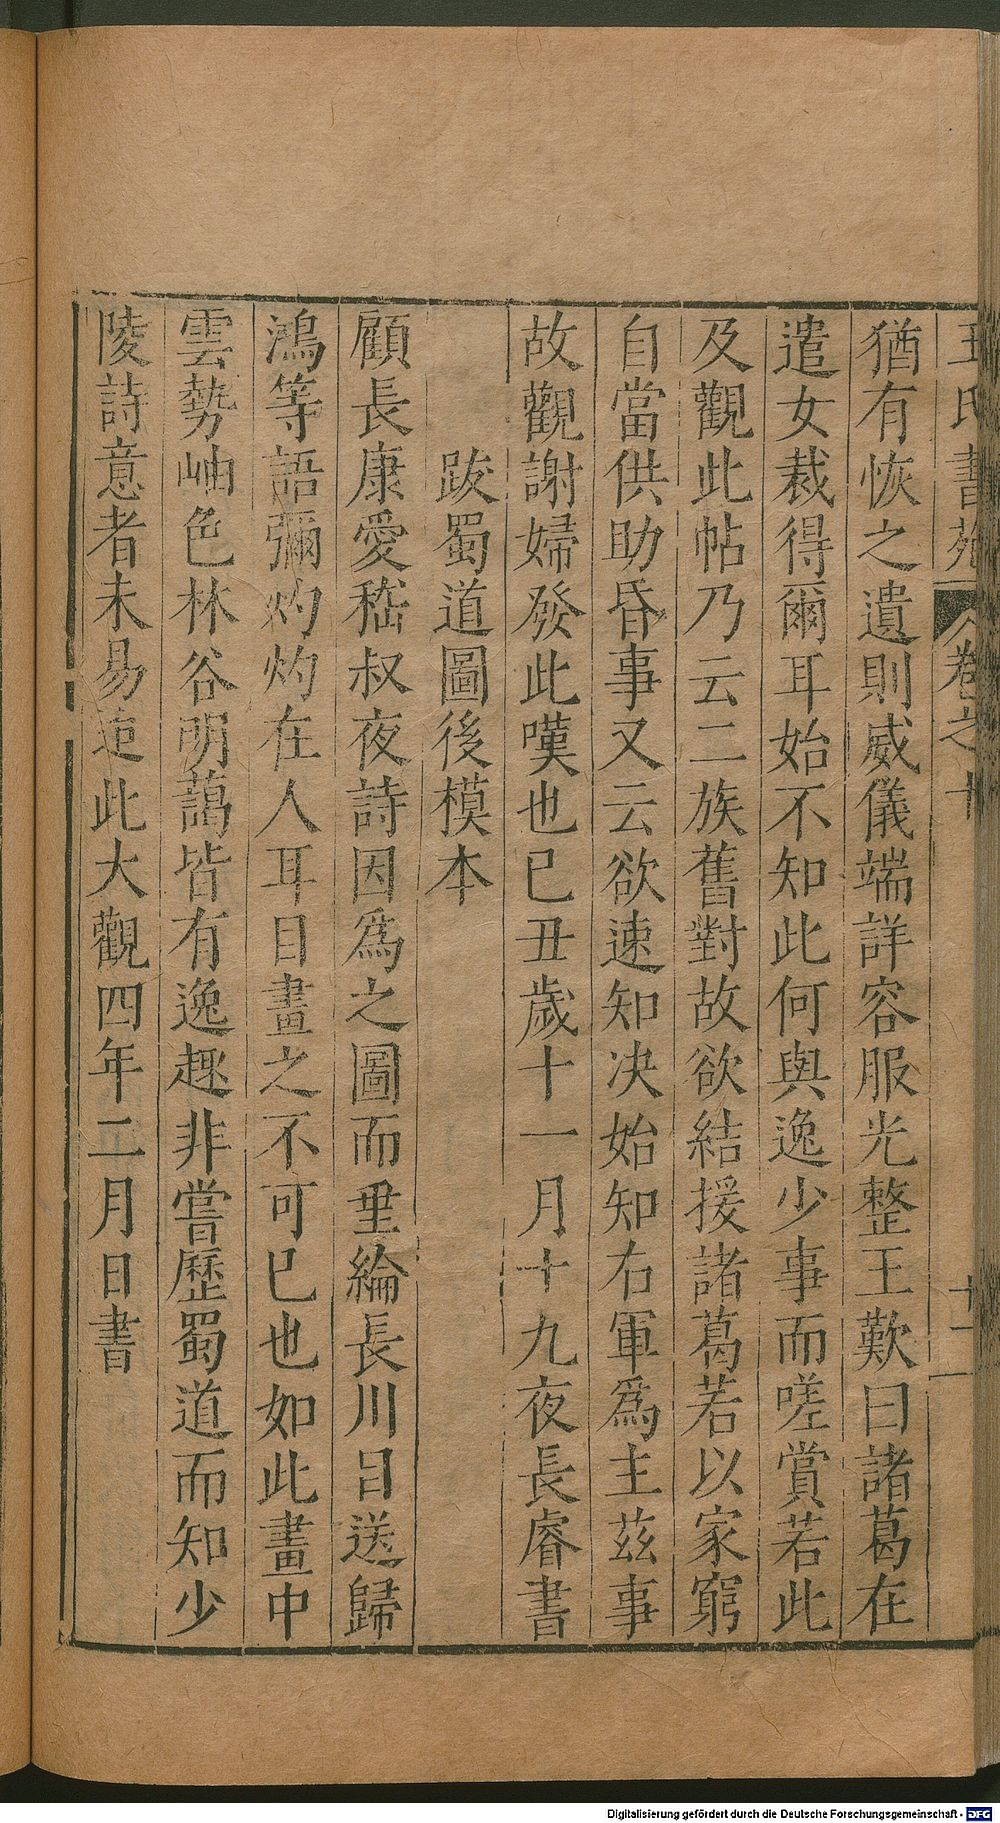 王氏書苑 卷之十 十一
猶有恢之遺則威儀端詳容服光整王歎曰諸葛在
遣女裁得爾耳始不知此何與逸少事而嗟賞若此
及觀此帖乃云二族舊對故欲結援諸葛若以家窮
自當供助昏事又云欲速知决始知右軍爲主茲事
故觀謝婦發此嘆也已丑歲十一月十九夜長睿書
跋蜀道圖後模本
顧長康愛嵇叔夜詩因爲之圖而垂綸長川目送歸
鴻等語彌灼灼在人耳目畫之不可已也如此畫中
雲勢岫色林谷明藹皆有逸趣非嘗歷蜀道而知少
陵詩意者未易造此大觀四年二月日書
Digitalisierung gefördert durch die Deutsche Forschungsgemeinschaft - DFG